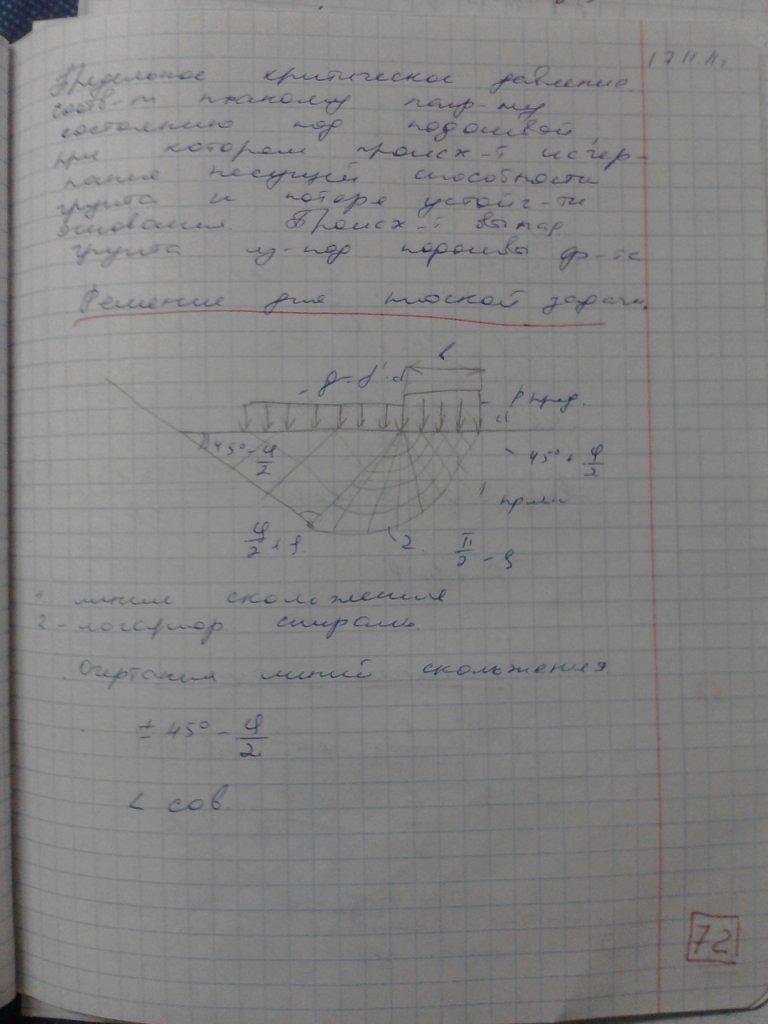 Предельное критическое давление
соотв-т полному пред-му
состоянию под подошвой,
при котором происх-т исчер-
пание несущей способности
грунта и потеря устойч-ти
основания Происх-т выпор
грунта из-под подошвы ф-та
Решение для плоской задачи.
b
q=γ'·d
P пред.
45° - φ/2
45° + φ/2
2.
π/2 -
линии скольжения
2 - логариф спираль
Очертания линий скольжения
± 45° - φ/2
< сов.
72